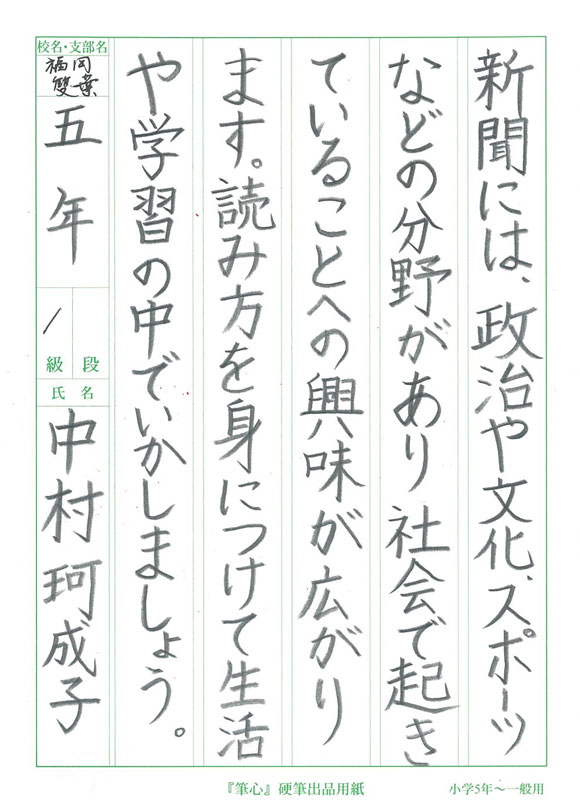 新聞には、政治や文化、スポーツ
などの分野があり社会で起き
ていることへの興味が広がり
ます。読み方を身につけて生活
や学習の中でいかしましょう。
校名・支部名
福岡
雙葉
五年
段
1級
氏名
中村珂成子
『筆心』硬筆出品用紙
小学5年～一般用